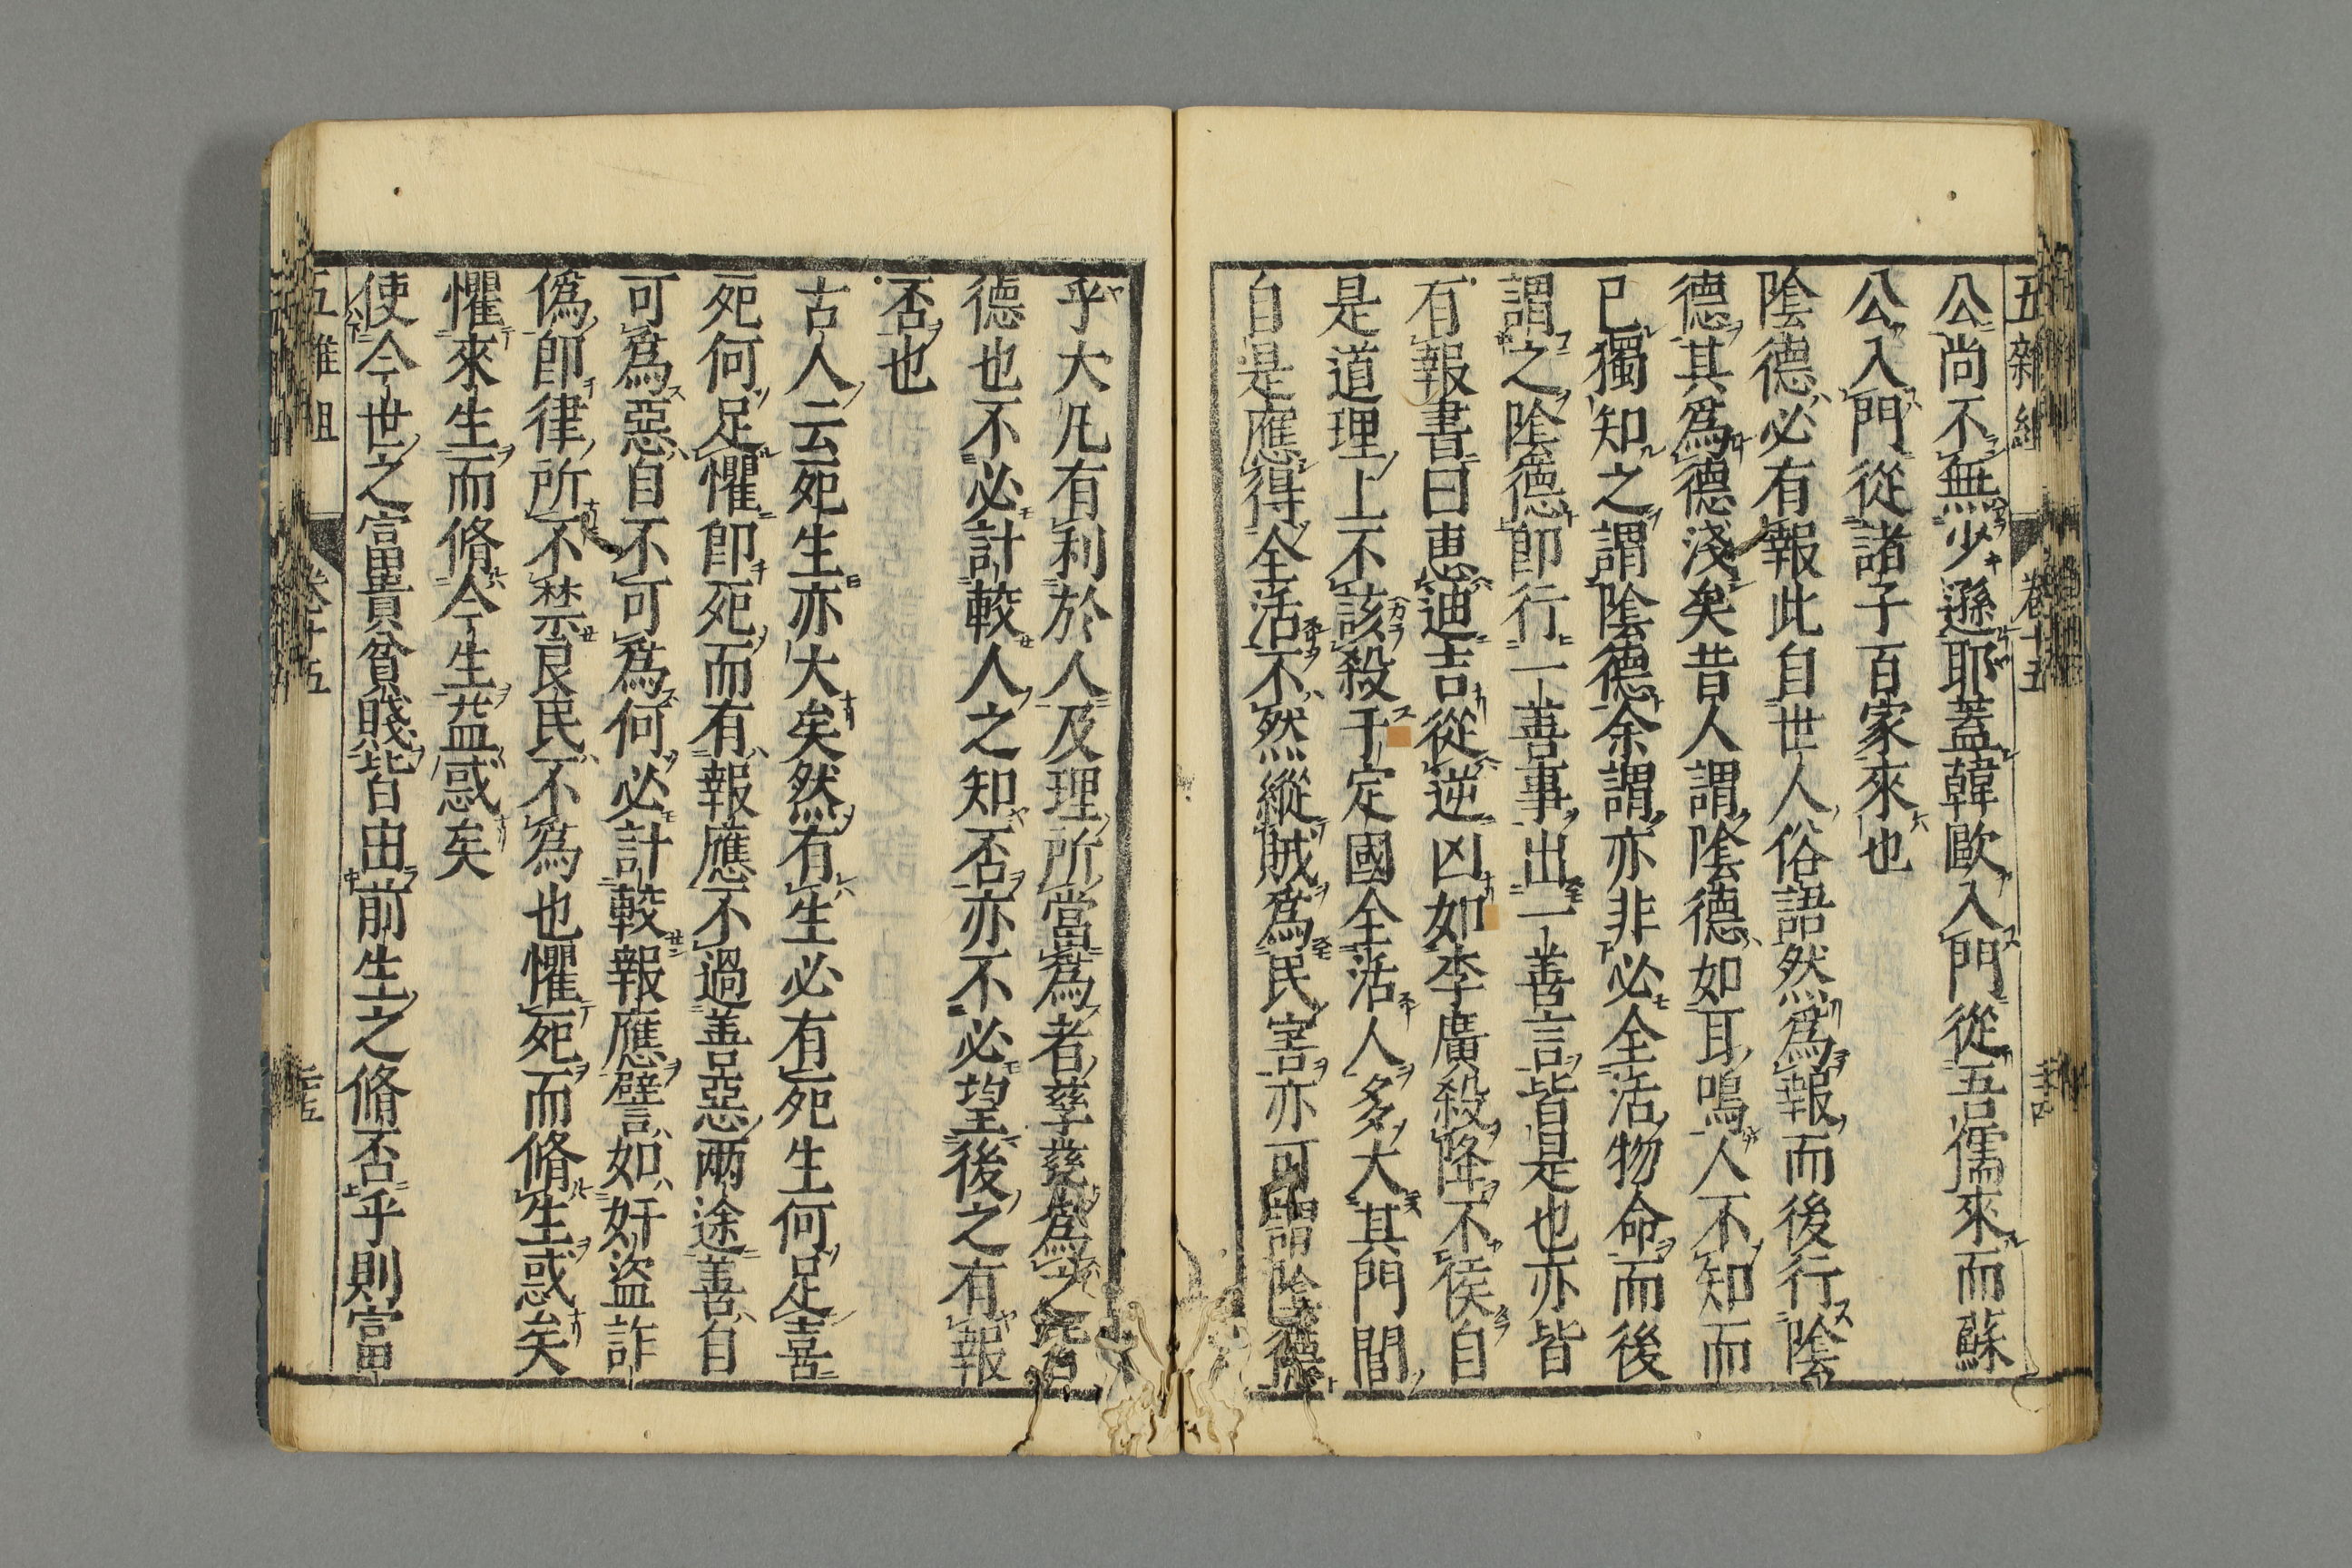 五雜組 卷十五
公尚不無少遜耶蓋韓歐入門從吾儒來而蘇
公入門從諸子百家來也
陰德必有報此自世人俗語然爲報而後行陰
德其爲德淺矣昔人謂陰德如耳鳴人不知而
已獨知之謂陰德余謂亦非必全活物命而後
謂之陰德即行一善事出一善言皆是也亦皆
有報書曰惠迪吉從逆凶如李廣殺降不侯自
是道理上不該殺于定國全活人多大其門閭
自是應得全活不然縱賊爲民害亦可謂陰德
乎大凡有利於人及理所當爲者孳孳爲之
德也不必計較人之知否亦不必望後之有報
否也
古人云死生亦大矣然有生必有死生何足喜
死何足懼即死而有報應不過善惡兩途善自
可爲惡自不可爲何必計較報應譬如奸盜詐
僞即律所不禁良民不爲也懼死而脩生惑矣
懼來生而脩今生益惑矣
使今世之富貴貧賤皆由前生之脩否乎則富
五雜組 卷十五